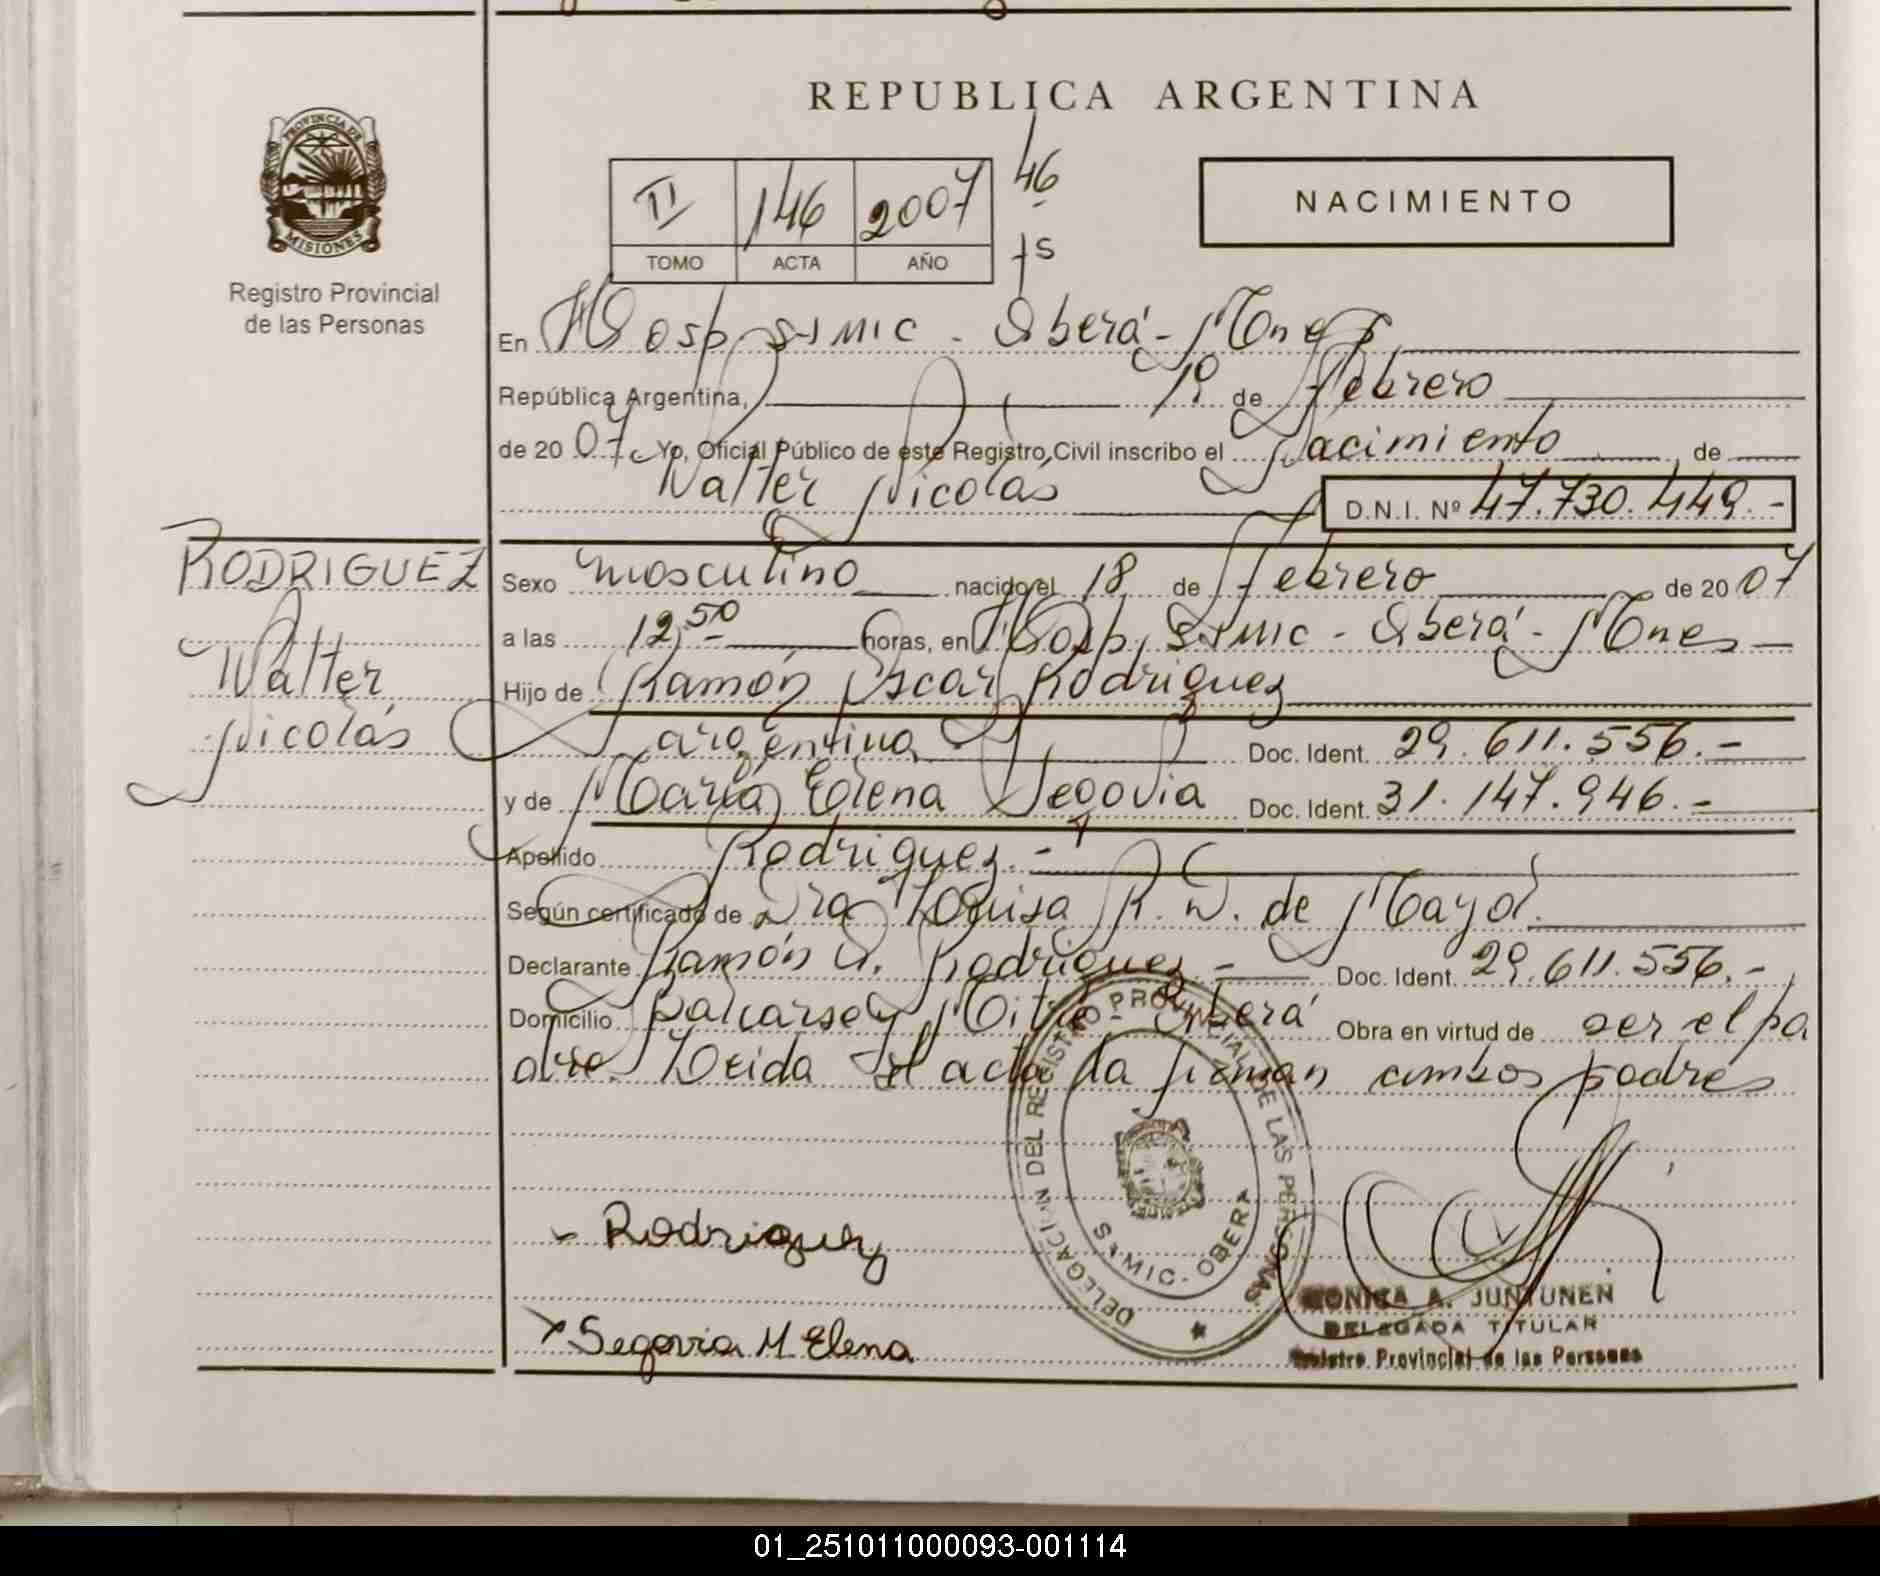 REPUBLICA ARGENTINA
PROVINCIA DE
MISIONES
Registro Provincial
de las Personas
II 146 2007
TOMO ACTA AÑO
46
fs
NACIMIENTO
En Hosp. SAMIC - Oberá - Mnes,
República Argentina, 19 de Febrero
de 2007. Yo, Oficial Público de este Registro Civil inscribo el Nacimiento de
Walter Nicolás D.N.I. Nº 47.730.449.-
RODRIGUEZ
Walter
Nicolás
Sexo masculino nacido el 18 de Febrero de 2007
a las 12,50 horas, en Hosp. SAMIC - Oberá - Mnes
Hijo de Ramón Oscar Rodriguez
argentina Doc. Ident. 29.611.556.-
y de María Elena Segovia Doc. Ident. 31.147.946.-
Apellido Rodriguez.-
Según certificado de Dra R. W. de Mayol.
Declarante Ramón O. Rodriguez.- Doc. Ident. 29.611.556.-
Domicilio Mitre - Oberá Obra en virtud de ser el pa
dre. Leida el acta la firman ambos padres
Rodriguez
Segovia M Elena
DELEGACION DEL REGISTRO PROVINCIAL DE LAS PERSONAS
SAMIC - OBERA
MONICA A. JUNTUNEN
DELEGADA TITULAR
Registro Provincial de las Personas
01_251011000093-001114